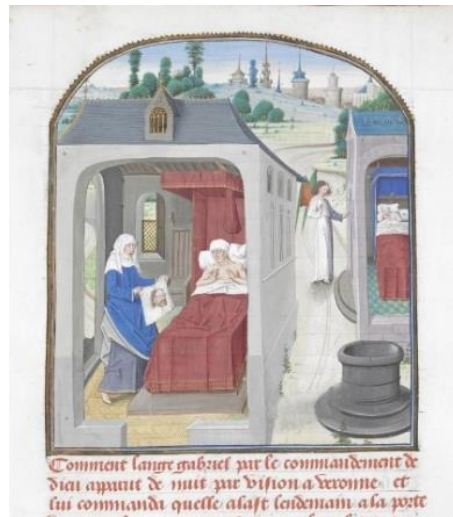 Comment lange gabriel par le commandement de
dieu apparut de nuit par vision a veronne et
lui commanda quelle alast lendemain a la porte